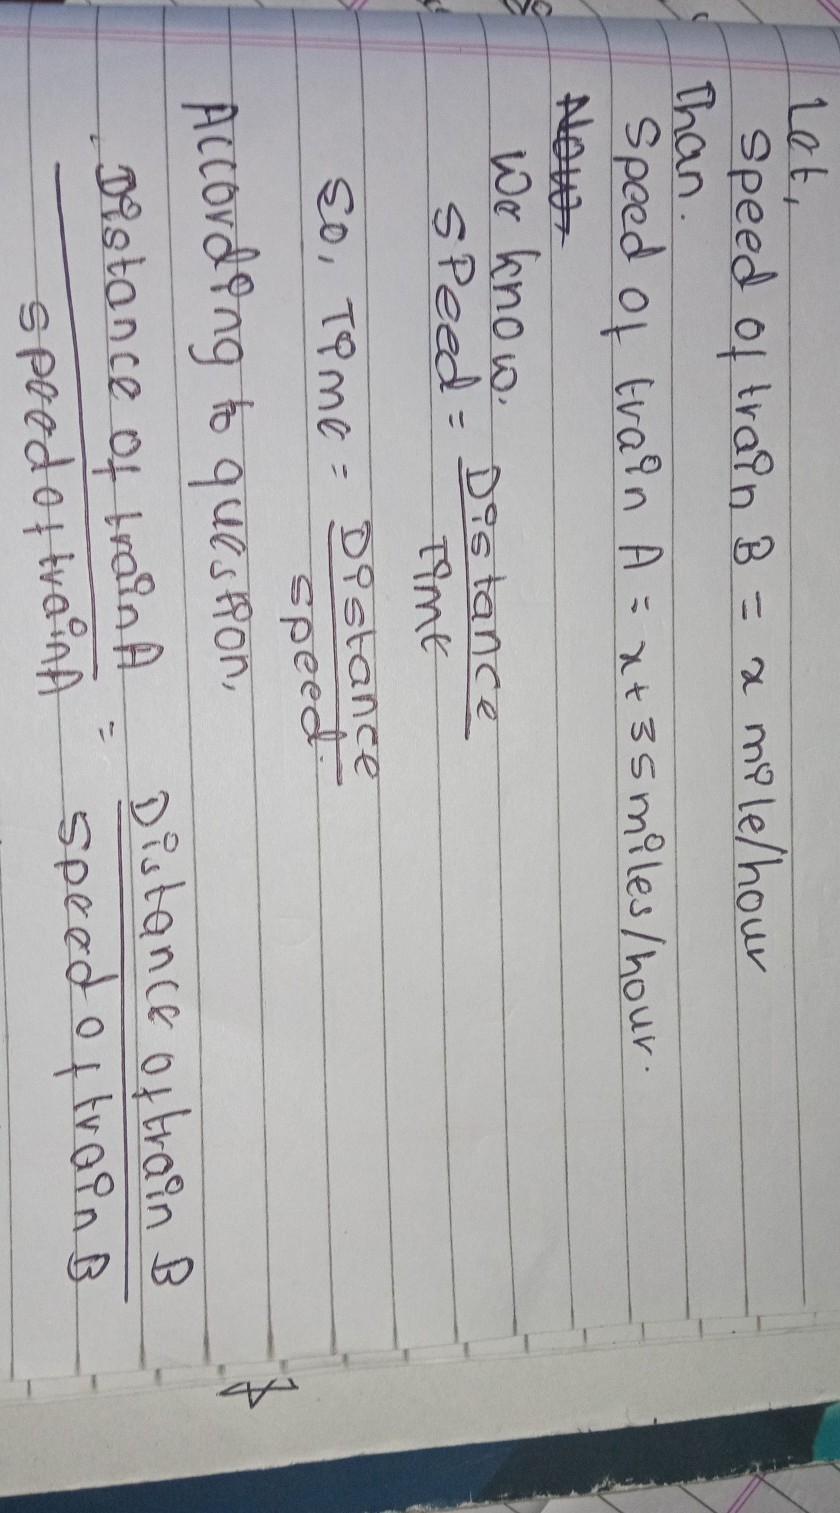 Let,
Speed of train B = x mile/hour
Than.
Speed of train A = x + 35 miles/hour.
Now,
We know.
Speed = Distance
Time
So, Time = Distance
Speed.
According to question,
Distance of train A = Distance of train B
Speed of train A Speed of train B